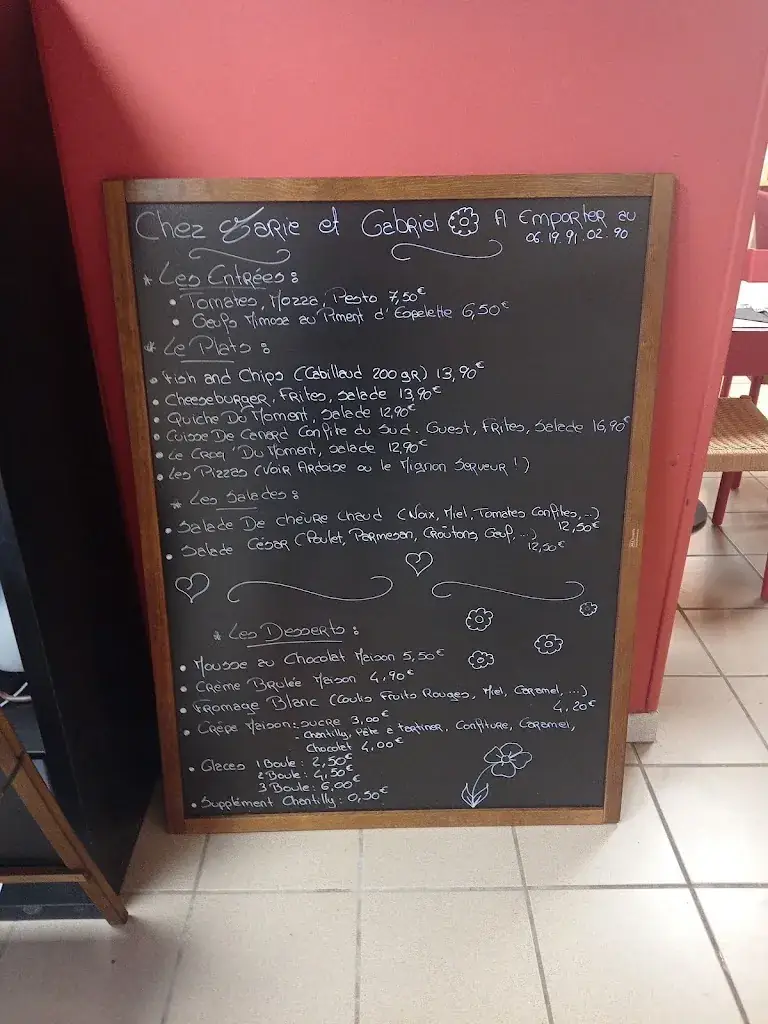 Chez Marie et Gabriel A Emporter au
06.19.91.02.90
* Les Entrées :
• Tomates, Mozza, Pesto 7,50€
• Oeufs Mimosa au Piment d'Espelette 6,50€
* Le Plats :
• Fish and Chips (Cabillaud 200 gr) 13,90€
• Cheeseburger, Frites, Salade 13,90€
• Quiche Du Moment, Salade 12,90€
• Cuisse De Canard Confite du Sud. Ouest, Frites, Salade 16,90€
• Le Croq' Du Moment, Salade 12,90€
• Les Pizzas (Voir Ardoise ou le Mignon Serveur !)
* Les Salades :
• Salade De chèvre chaud (Noix, Miel, Tomates Confites, ...)
12,50€
• Salade César (Poulet, Parmesan, Croûtons Oeuf, ...)
12,50€
* Les Desserts :
• Mousse au Chocolat Maison 5,50€
• Crème Brulée Maison 4,90€
• Fromage Blanc (Coulis Fruits Rouges, Miel, Caramel, ...)
4,20€
• Crêpe Maison: sucre 3,00€
- Chantilly, Pâte à tartiner, Confiture, Caramel,
Chocolat 4,00€
• Glaces 1 Boule : 2,50€
2 Boule : 4,50€
3 Boule : 6,00€
• Supplément Chantilly : 0,50€